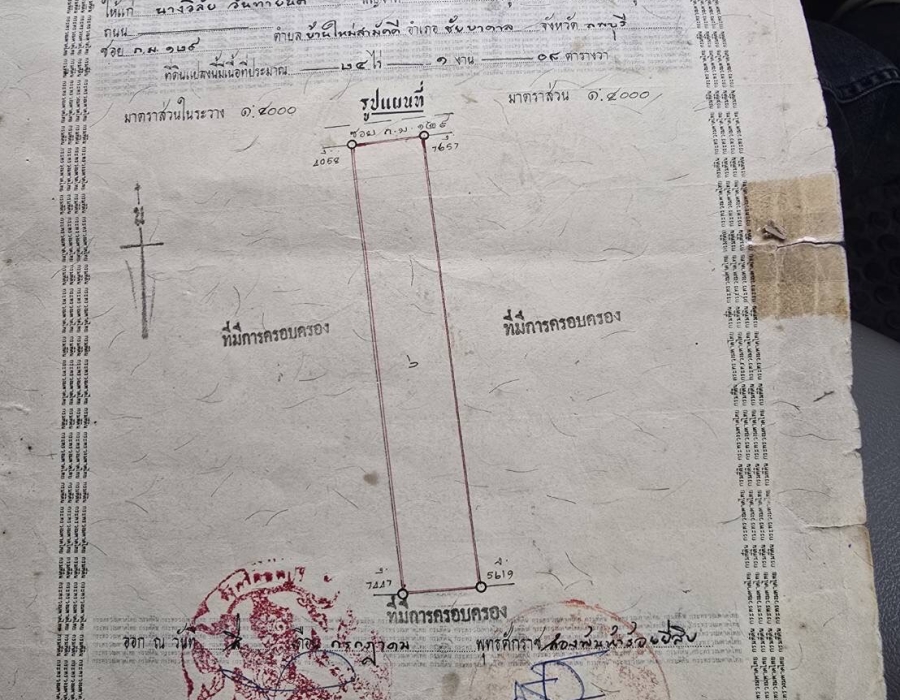 ให้แก่ นางวิลัย
ถนน ตำบล บ้านใหม่สามัคคี อำเภอ ชัยบาดาล จังหวัด ลพบุรี
ซอย ก.ม. ๑๒๕
ที่ดินแปลงนี้มีเนื้อที่ประมาณ ๒๔ ไร่ ๑ งาน ๐๙ ตารางวา
รูปแผนที่
มาตราส่วนในระวาง ๑:๔๐๐๐ มาตราส่วน ๑:๔๐๐๐
ซอย ก.ม. ๑๒๕
7657
น
ที่มีการครอบครอง ที่มีการครอบครอง
๖
5619
ที่มีการครอบครอง
ออก ณ วันที่ เดือน กรกฎาคม พุทธศักราช สองพันห้าร้อยยี่สิบ